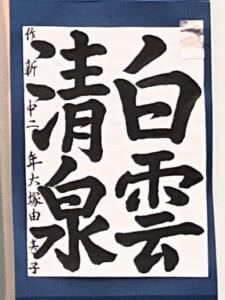 白雲
清泉
作新 中二年 大塚由美子